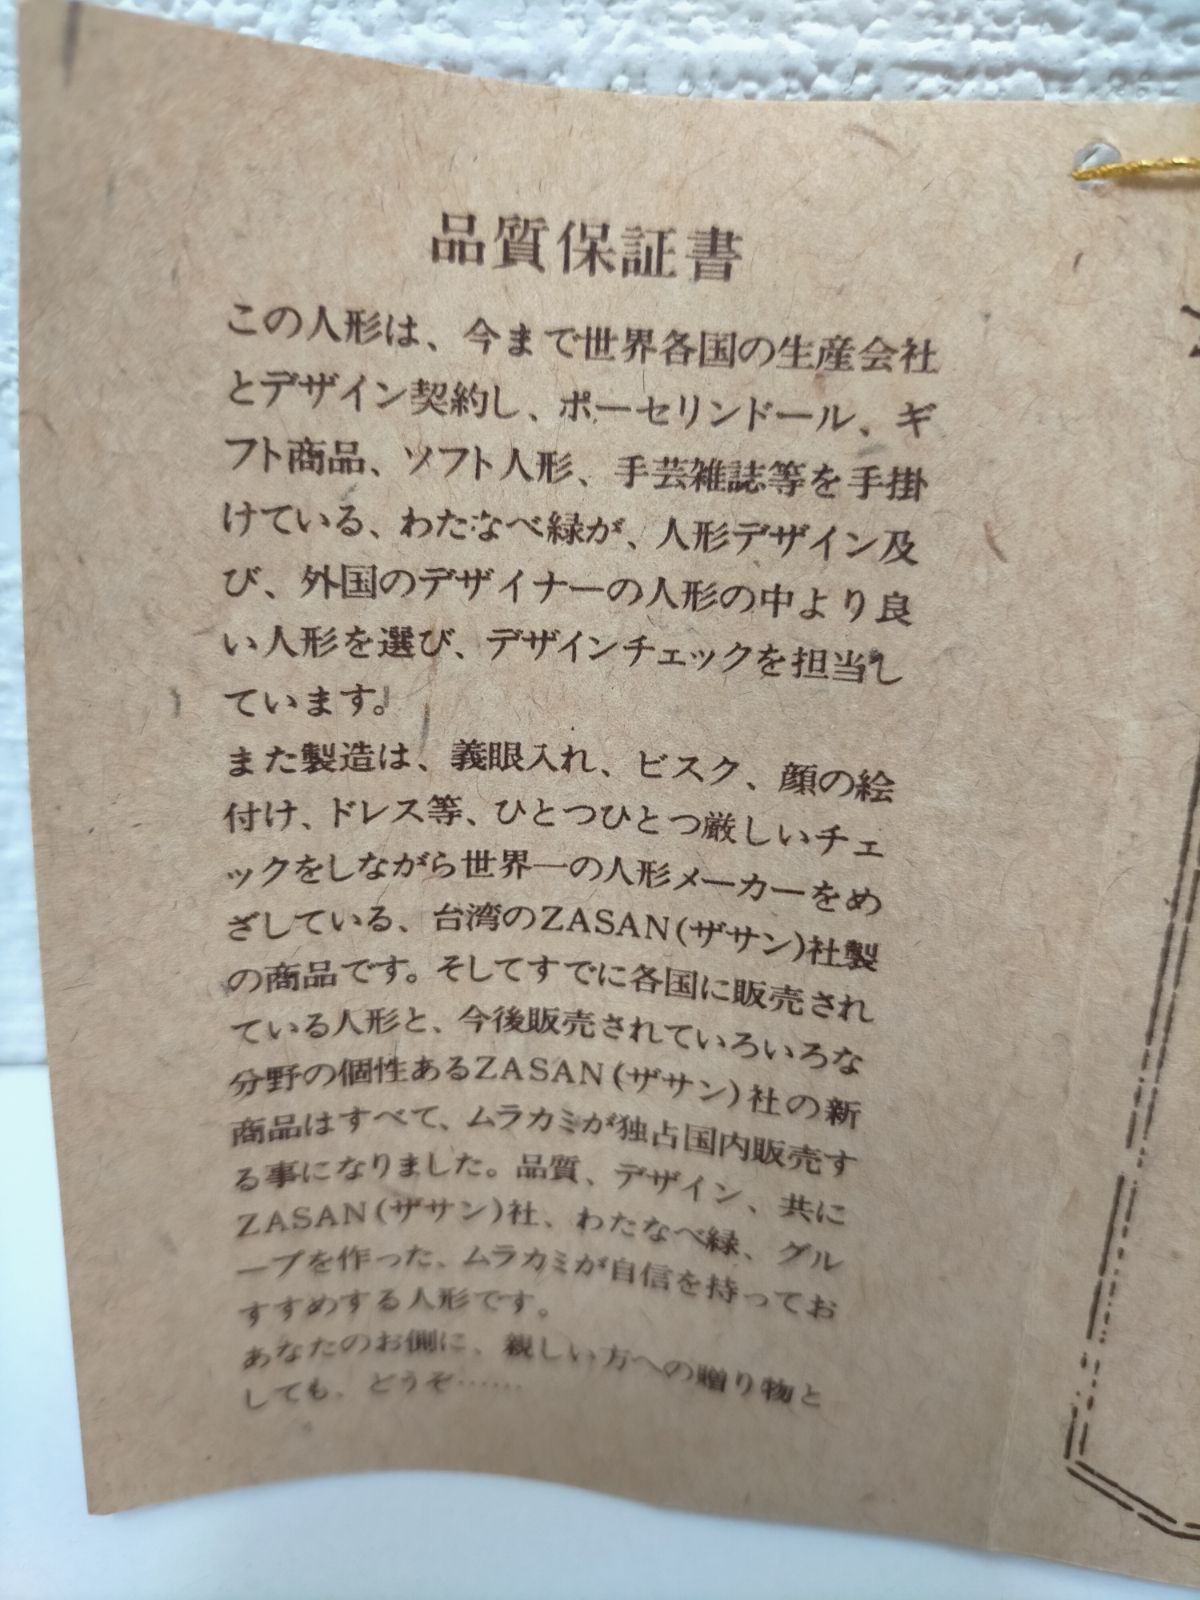 品質保証書
この人形は、今まで世界各国の生産会社
とデザイン契約し、ポーセリンドール、ギ
フト商品、ソフト人形、手芸雑誌等を手掛
けている、わたなべ緑が、人形デザイン及
び、外国のデザイナーの人形の中より良
い人形を選び、デザインチェックを担当し
ています。
また製造は、義眼入れ、ビスク、顔の絵
付け、ドレス等、ひとつひとつ厳しいチェ
ックをしながら世界一の人形メーカーをめ
ざしている、台湾のZASAN(ザサン)社製
の商品です。そしてすでに各国に販売され
ている人形と、今後販売されていろいろな
分野の個性あるZASAN(ザサン)社の新
商品はすべて、ムラカミが独占国内販売す
る事になりました。品質、デザイン、共に
ZASAN(ザサン)社、わたなべ緑、グル
ープを作った、ムラカミが自信を持ってお
すすめする人形です。
あなたのお側に、親しい方への贈り物と
しても、どうぞ……